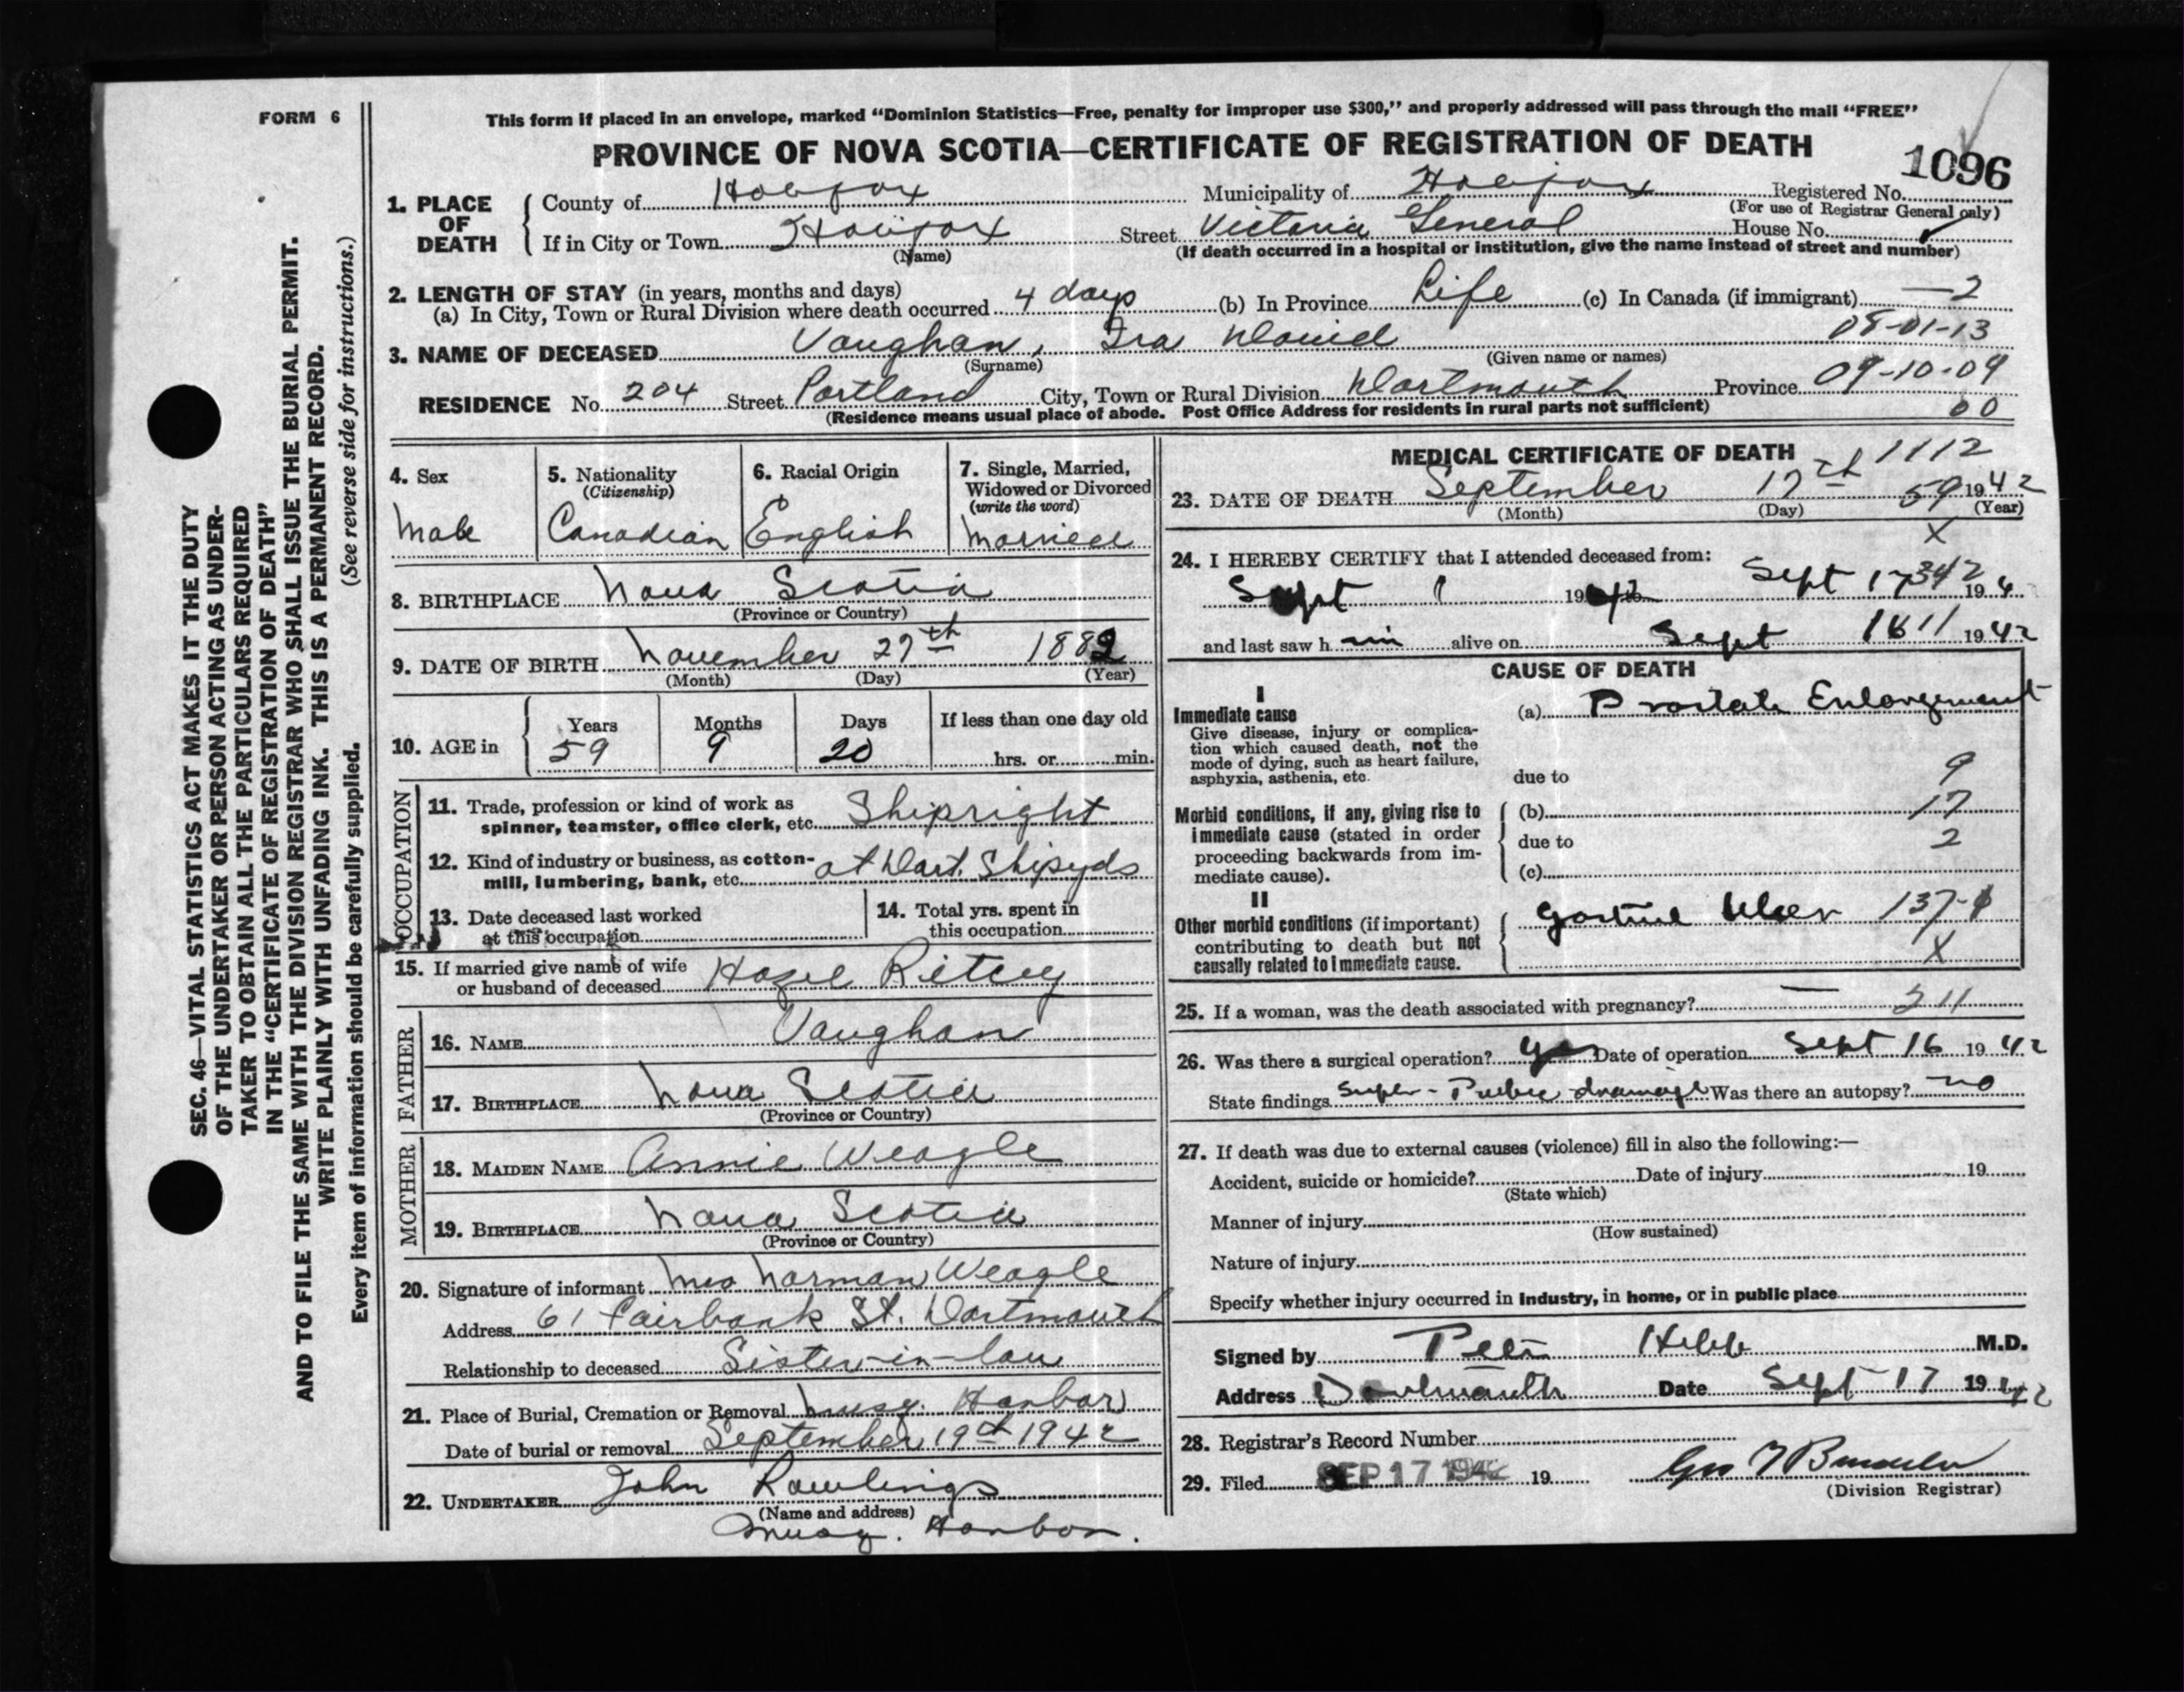 FORM 6
This form if placed in an envelope, marked "Dominion Statistics—Free, penalty for improper use $300," and properly addressed will pass through the mail "FREE"
PROVINCE OF NOVA SCOTIA—CERTIFICATE OF REGISTRATION OF DEATH
1096
1. PLACE OF DEATH
County of Halifax Municipality of Halifax Registered No.
(For use of Registrar General only)
If in City or Town Halifax Street Victoria General House No.
(Name) (If death occurred in a hospital or institution, give the name instead of street and number)
2. LENGTH OF STAY (in years, months and days)
(a) In City, Town or Rural Division where death occurred 4 days (b) In Province Life (c) In Canada (if immigrant) —2
08-01-13
3. NAME OF DECEASED Vaughan, Ira David
(Surname) (Given name or names)
RESIDENCE No. 204 Street Portland City, Town or Rural Division Dartmouth Province 09-10-09
(Residence means usual place of abode. Post Office Address for residents in rural parts not sufficient) 00
4. Sex
Male
5. Nationality
(Citizenship)
Canadian
6. Racial Origin
English
7. Single, Married,
Widowed or Divorced
(write the word)
Married
8. BIRTHPLACE Nova Scotia
(Province or Country)
9. DATE OF BIRTH November 27th 1882
(Month) (Day) (Year)
10. AGE in
Years Months Days If less than one day old
59 9 20 hrs. or min.
OCCUPATION
11. Trade, profession or kind of work as
spinner, teamster, office clerk, etc. Shipright
12. Kind of industry or business, as cotton-
mill, lumbering, bank, etc. at Dart. Shipyds
13. Date deceased last worked
at this occupation
14. Total yrs. spent in
this occupation
15. If married give name of wife
or husband of deceased Hazel Ritcey
FATHER
16. NAME Vaughan
17. BIRTHPLACE Nova Scotia
(Province or Country)
MOTHER
18. MAIDEN NAME Annie Weagle
19. BIRTHPLACE Nova Scotia
(Province or Country)
20. Signature of informant Mrs Norman Weagle
Address 61 Fairbank St. Dartmouth
Relationship to deceased Sister-in-law
21. Place of Burial, Cremation or Removal Musq. Harbor
Date of burial or removal September 19th 1942
22. UNDERTAKER John Rawlings
(Name and address)
Musq. Harbor.
MEDICAL CERTIFICATE OF DEATH
1112
23. DATE OF DEATH September 17th 59 1942
(Month) (Day) (Year)
X
24. I HEREBY CERTIFY that I attended deceased from:
Sept 1 1942 Sept 17 194
342
and last saw h im alive on Sept 16 11 1942
CAUSE OF DEATH
I
Immediate cause
Give disease, injury or complica-
tion which caused death, not the
mode of dying, such as heart failure,
asphyxia, asthenia, etc.
(a) Prostate Enlargement
due to 9
Morbid conditions, if any, giving rise to
immediate cause (stated in order
proceeding backwards from im-
mediate cause).
(b) 17
due to 2
(c)
II
Other morbid conditions (if important)
contributing to death but not
causally related to immediate cause.
Gastric Ulcer 137-
X
25. If a woman, was the death associated with pregnancy? — 211
26. Was there a surgical operation? Yes Date of operation Sept 16 1942
State findings Super-Pubic drainage Was there an autopsy? no
27. If death was due to external causes (violence) fill in also the following:—
Accident, suicide or homicide? Date of injury 19
(State which)
Manner of injury
(How sustained)
Nature of injury
Specify whether injury occurred in industry, in home, or in public place
Signed by Hebb M.D.
Address Dartmouth Date Sept 17 1942
28. Registrar's Record Number
29. Filed SEP 17 1942 19
(Division Registrar)
SEC. 46—VITAL STATISTICS ACT MAKES IT THE DUTY
OF THE UNDERTAKER OR PERSON ACTING AS UNDER-
TAKER TO OBTAIN ALL THE PARTICULARS REQUIRED
IN THE "CERTIFICATE OF REGISTRATION OF DEATH"
AND TO FILE THE SAME WITH THE DIVISION REGISTRAR WHO SHALL ISSUE THE BURIAL PERMIT.
WRITE PLAINLY WITH UNFADING INK. THIS IS A PERMANENT RECORD.
Every item of information should be carefully supplied. (See reverse side for instructions.)